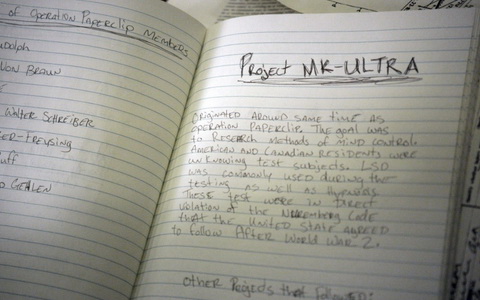 of Operation Paperclip Members
udolph
Von Braun
Walter Schreiber
er-Treysing
uff
d Gehlen
Project MK-ULTRA
Originated around same time as
operation Paperclip. The goal was
to Research methods of mind control.
American and Canadian residents were
unknowing test subjects. LSD
was commonly used during the
testing as well as Hypnosis.
These test were in direct
violation of the Nuremberg Code
that the United State agreed
to follow After World War 2.
Other Projects that followed: